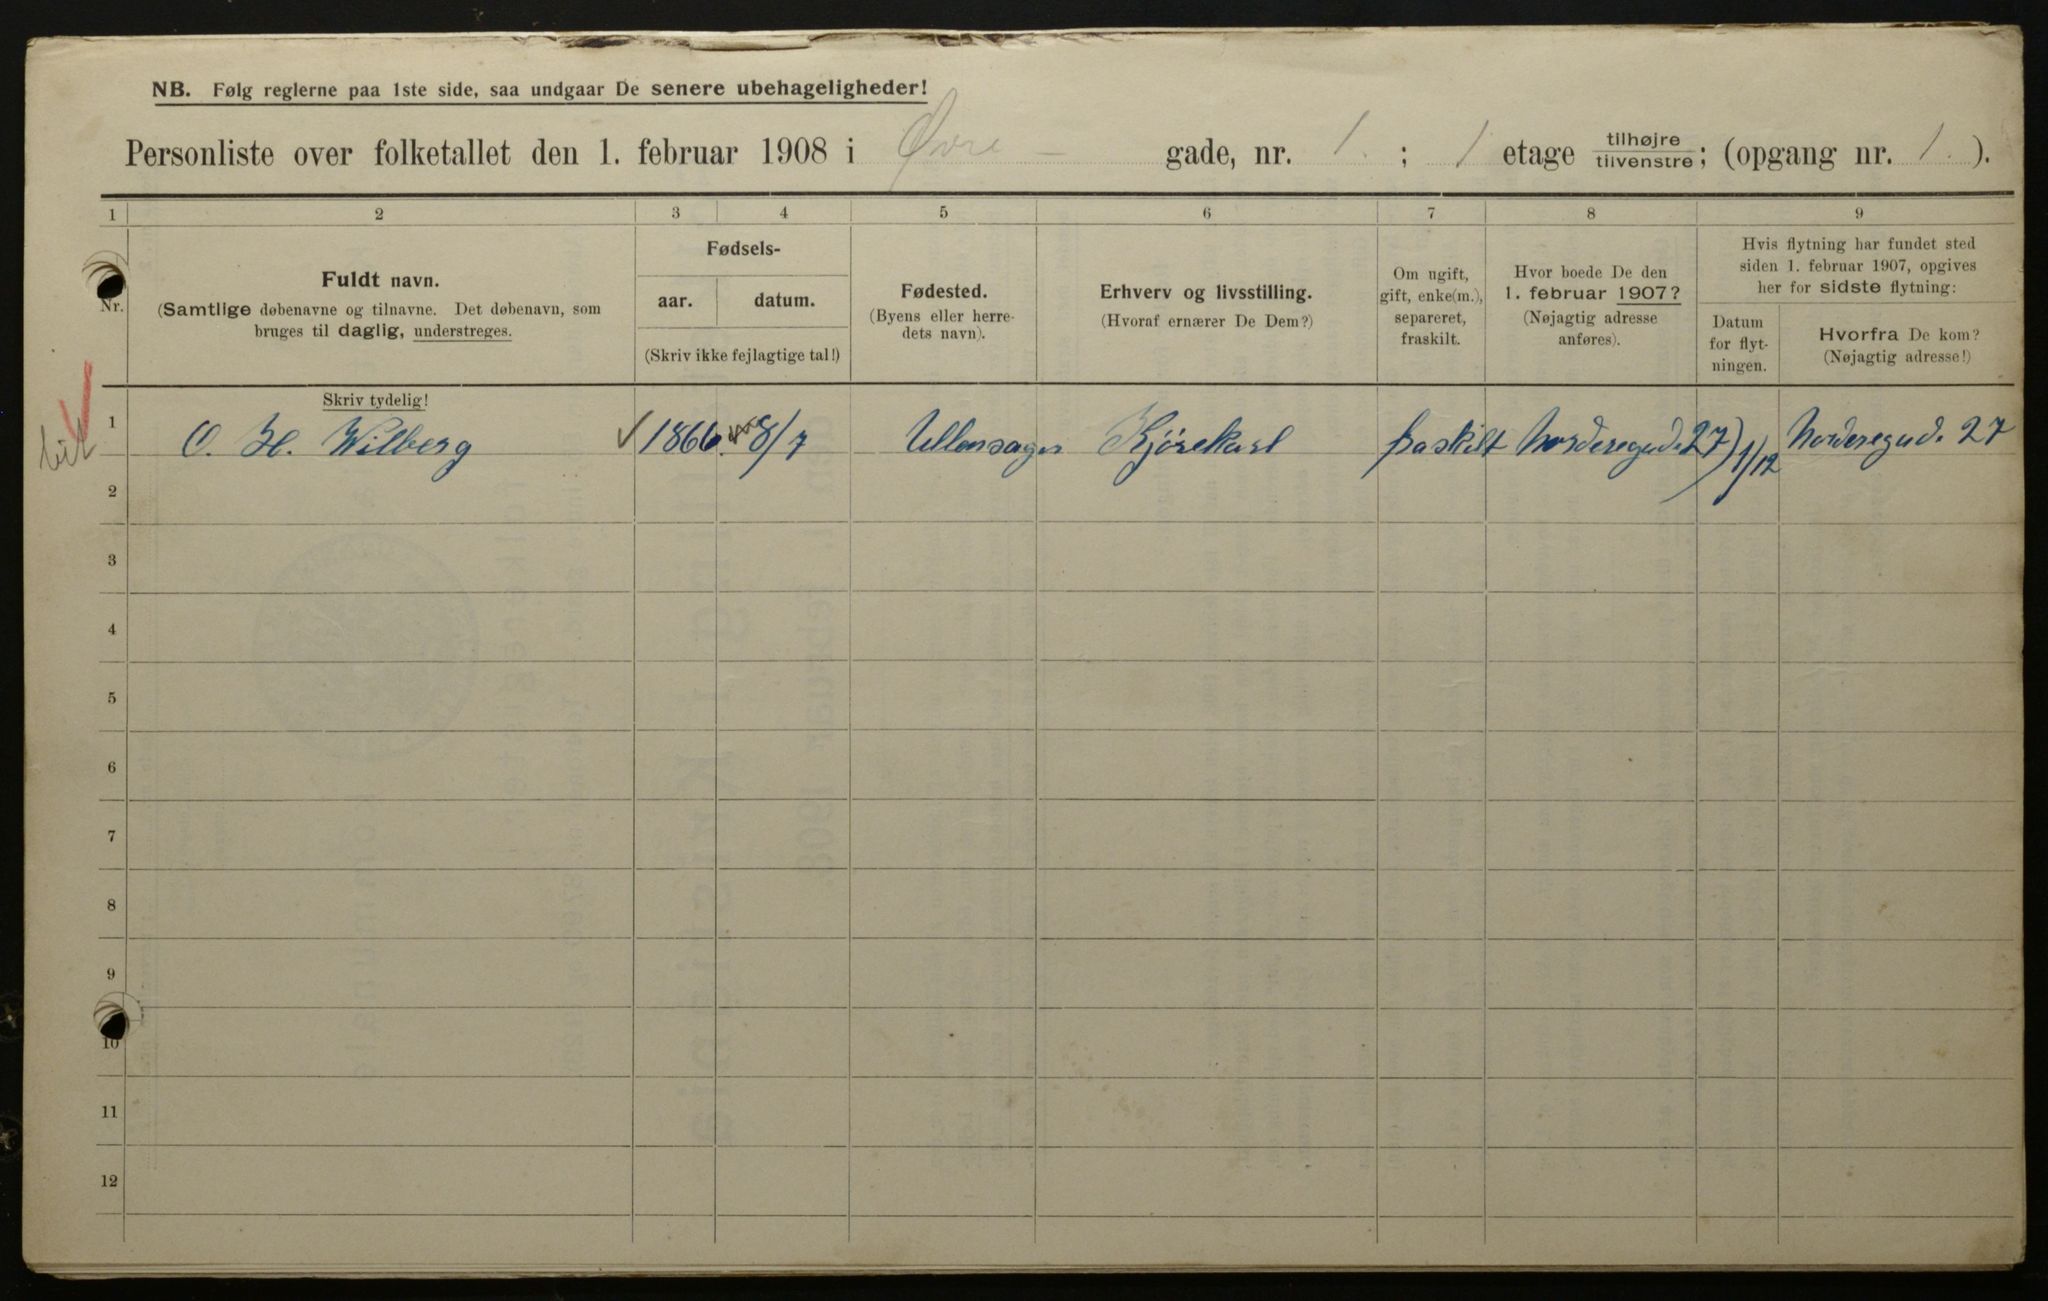 NB. Følg reglerne paa 1ste side, saa undgaar De senere ubehageligheder!
Personliste over folketallet den 1. februar 1908 i Øvre gade, nr. 1. ; 1 etage tilhøjre / tilvenstre ; (opgang nr. 1. ).
1 2 3 4 5 6 7 8 9
Nr.
Fuldt navn.
(Samtlige døbenavne og tilnavne. Det døbenavn, som
bruges til daglig, understreges.
Fødsels-
aar. datum.
(Skriv ikke fejlagtige tal!)
Fødested.
(Byens eller herre-
dets navn).
Erhverv og livsstilling.
(Hvoraf ernærer De Dem?)
Om ugift,
gift, enke(m.),
separeret,
fraskilt.
Hvor boede De den
1. februar 1907?
(Nøjagtig adresse
anføres).
Hvis flytning har fundet sted
siden 1. februar 1907, opgives
her for sidste flytning:
Datum
for flyt-
ningen.
Hvorfra De kom?
(Nøjagtig adresse!)
Skriv tydelig!
1 O. H. Wilberg 1866. 8/7 Ullensager Kjørekarl fraskilt Norderegad. 27 1/12 Norderegad. 27
2
3
4
5
6
7
8
9
10
11
12